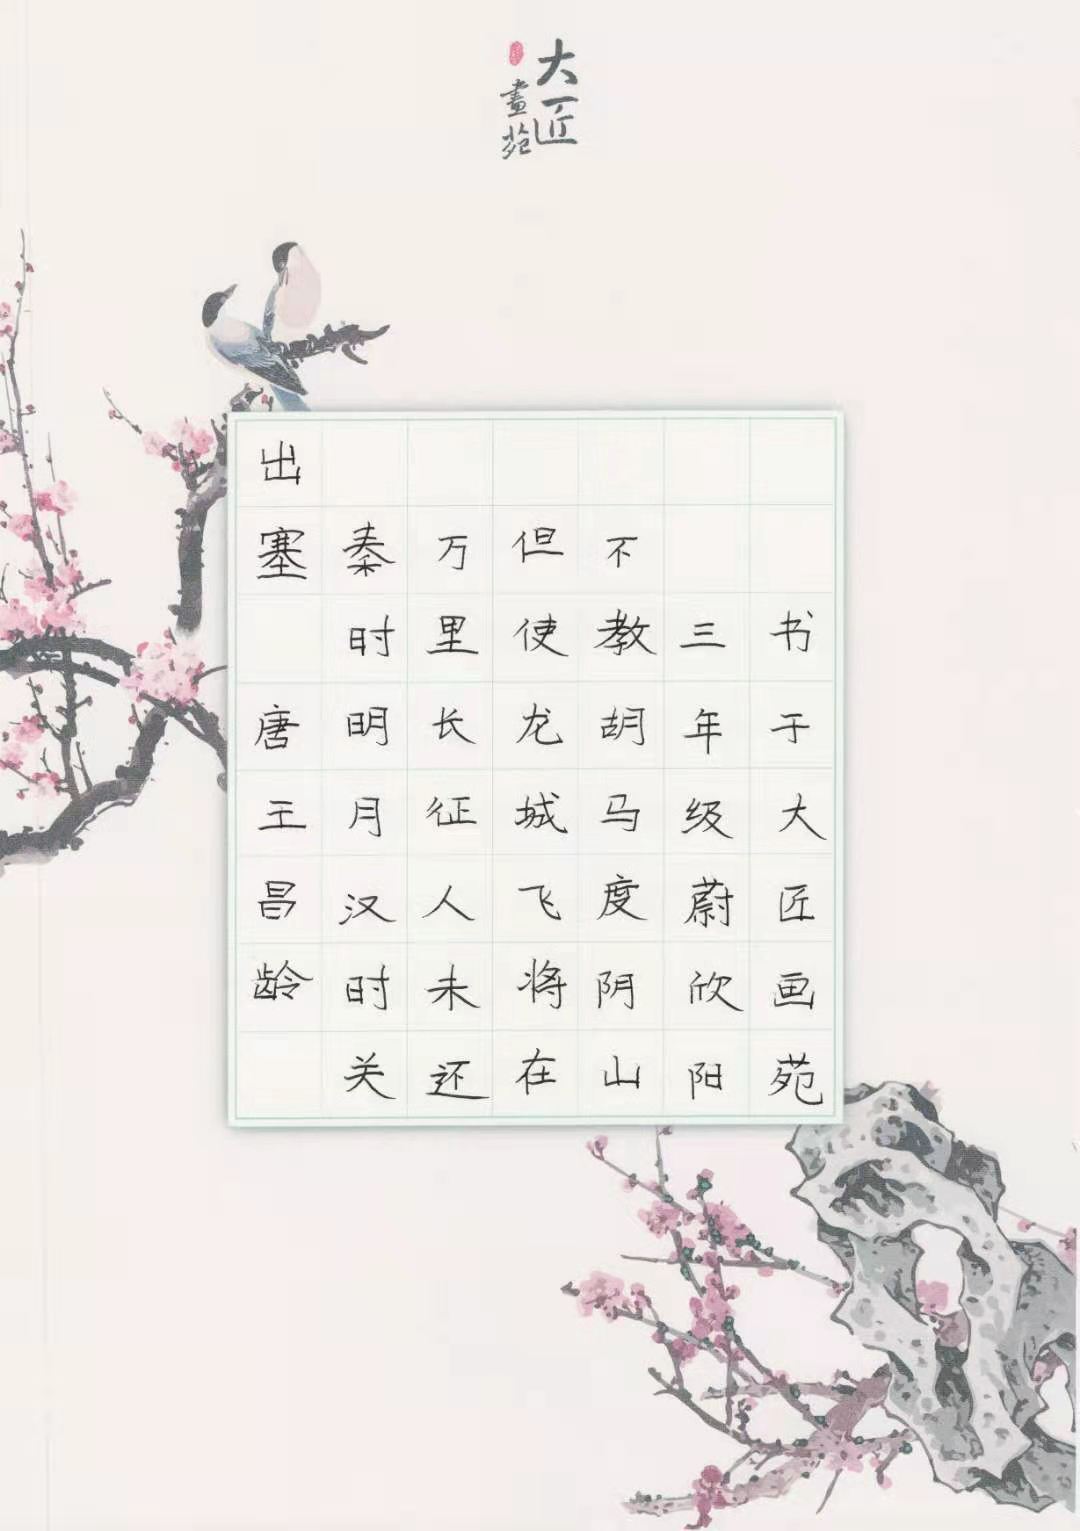 大匠
畫苑
出塞 唐王昌龄
秦时明月汉时关
万里长征人未还
但使龙城飞将在
不教胡马度阴山
三年级蔚欣阳
书于大匠画苑